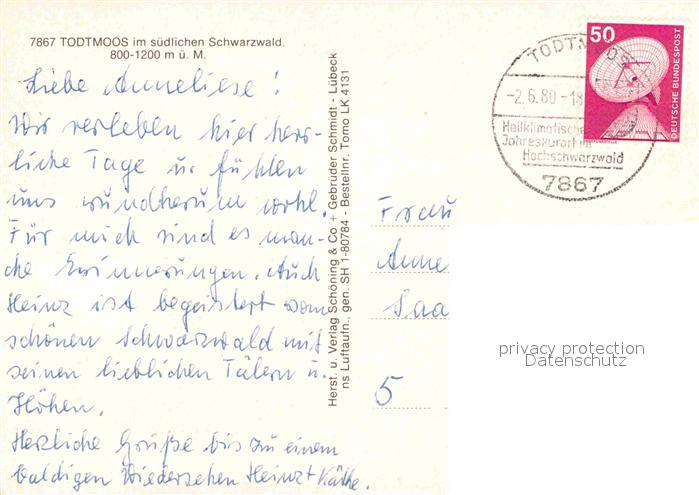 7867 TODTMOOS im südlichen Schwarzwald,
800-1200 m ü. M.
Liebe Anneliese!
Wir verleben hier herr-
liche Tage u. fühlen
uns rundherum wohl.
Für mich sind es man-
che Erinnerungen. Auch
Heinz ist begeistert vom
schönen Schwarzwald mit
seinen lieblichen Tälern u.
Höhen.
Herzliche Grüße bis zu einem
baldigen Wiedersehen Heinz + Käthe.
Herst. u. Verlag Schöning & Co + Gebrüder Schmidt - Lübeck
ns Luftaufn., gen. SH 1-80784 - Bestellnr. Tomo LK 4131
TODTMOOS
-2.6.80-18
Heilklimatische
Jahreskurort im
Hochschwarzwald
7867
50
DEUTSCHE BUNDESPOST
Frau
Anne
Saa
5
privacy protection
Datenschutz